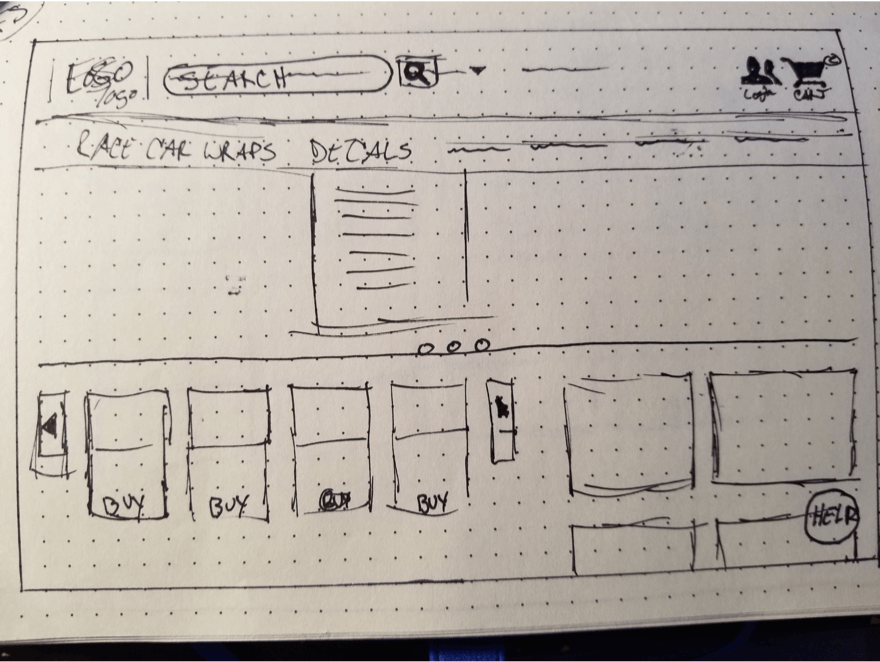 logo
SEARCH
Login
CART
RACE CAR WRAPS DECALS
BUY
BUY
BUY
BUY
HELP